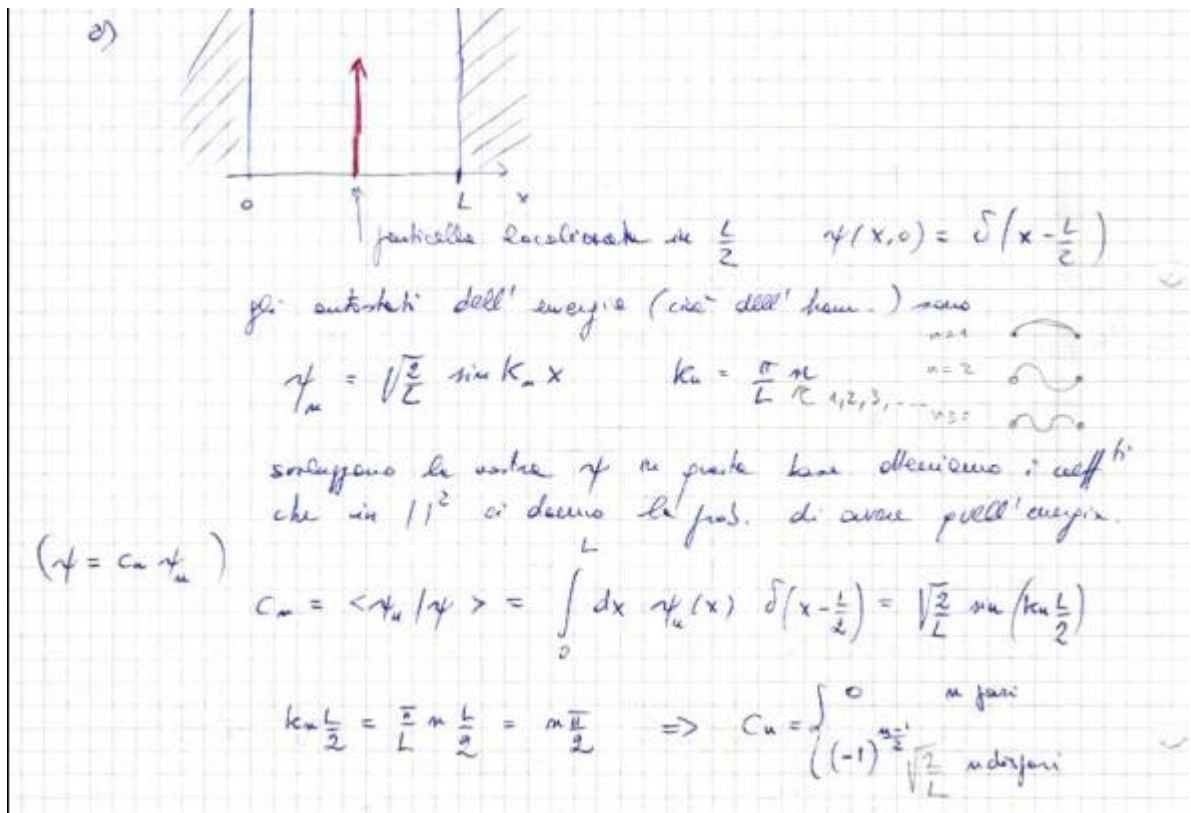 a)
0 L x
particella localizzata in L/2 ψ(x,0) = δ(x - L/2)
gli autostati dell'energia (cioè dell'ham.) sono
n=1
ψ_n = √(2/L) sin k_n x k_n = π/L n n=2
1,2,3,... n=3
sviluppano la nostra ψ in questa base otteniamo i coeff.ti
che in ||² ci danno la prob. di avere quell'energia.
(ψ = c_n ψ_n)
c_n = <ψ_n|ψ> = ∫_0^L dx ψ_n(x) δ(x - L/2) = √(2/L) sin(k_n L/2)
k_n L/2 = π/L n L/2 = n π/2 => C_n = { 0 n pari
(-1)^((n-1)/2) √(2/L) n dispari